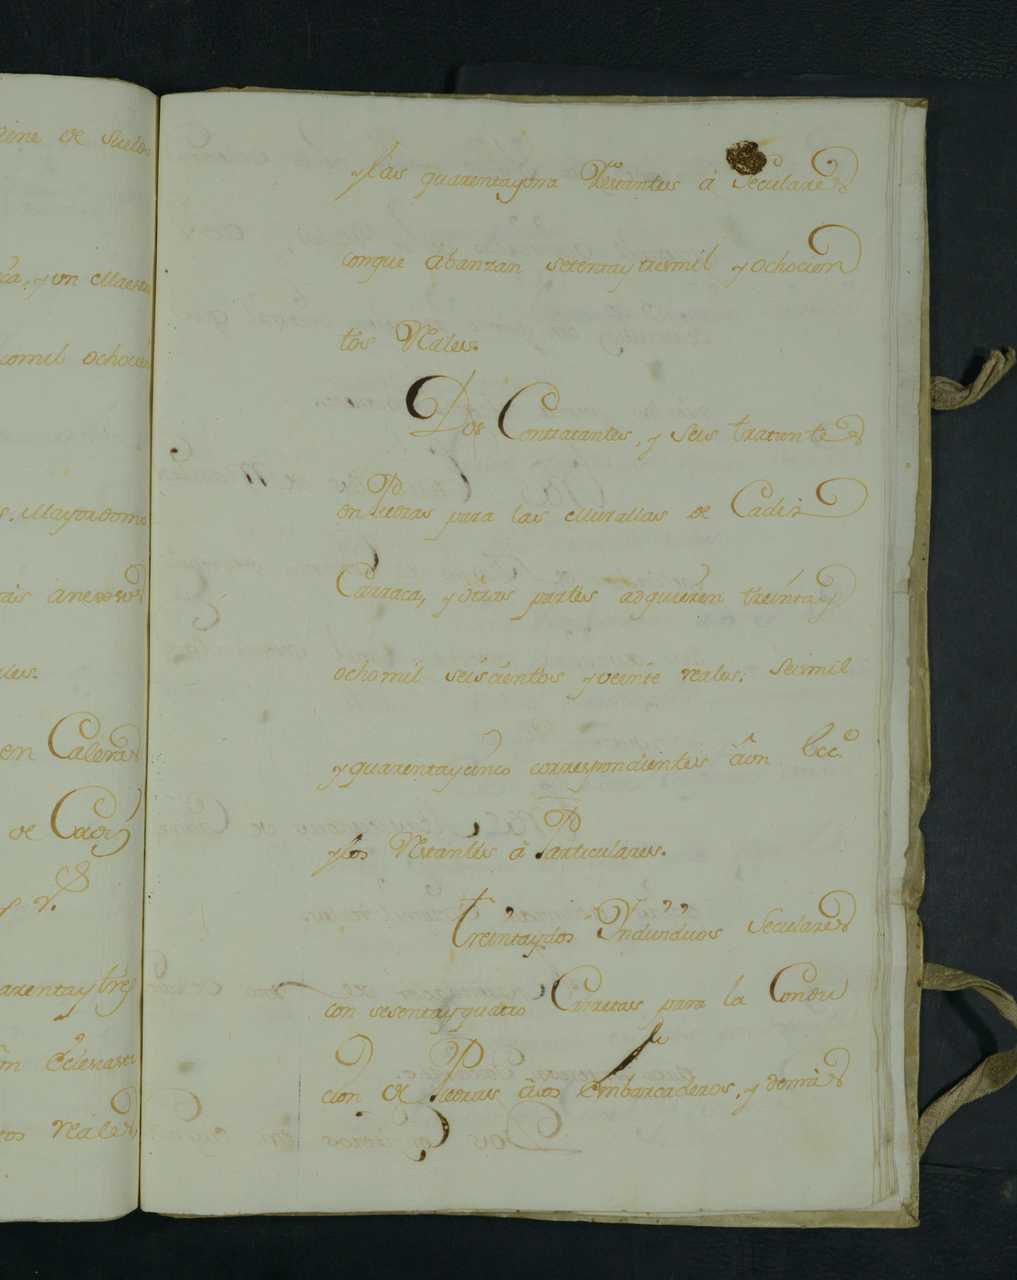 eine de Sueldo
ria, y un Maestro
comil ochocien
s, Mayordomo
ales.
en Caleras
de Cadiz
y V.
arentaytres
ôn Ecleciasti
tos reales,
y las quarentayuna Restantes â Seculares
conque âbanzan setentaytresmil y ochocien
tos Reales.
Dos Contratantes, y seis tratantes
en Piedras para las Murallas de Cadiz
Carraca, y otras partes adquieren treintay
ochomil seiscientos y veinte reales: Seismil
y quarentaycinco correspondientes âun Ecc.º
y los Restantes â Particulares.
Treintaydos Yndividuos Seculares
con sesentayquatro Carretas para la Condu
cion de Piedras âlos Embarcaderos, y demàs